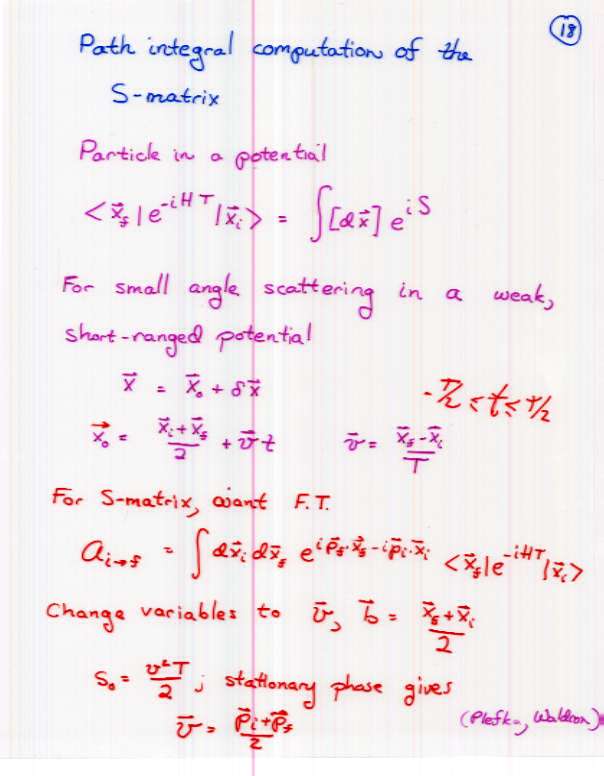 18
Path integral computation of the
S-matrix
Particle in a potential
<x⃗_f|e^{-iHT}|x⃗_i> = ∫[dx⃗] e^{iS}
For small angle scattering in a weak,
short-ranged potential
x⃗ = x⃗_0 + δx⃗
-T/2 ≤ t ≤ T/2
x⃗_0 = (x⃗_i + x⃗_f)/2 + v⃗t    v⃗ = (x⃗_f - x⃗_i)/T
For S-matrix, want F.T.
a_{i→f} = ∫ dx⃗_i dx⃗_f e^{ip⃗_f·x⃗_f - ip⃗_i·x⃗_i} <x⃗_f|e^{-iHT}|x⃗_i>
Change variables to v⃗, b⃗ = (x⃗_f + x⃗_i)/2
S_0 = v²T/2 ; stationary phase gives
v⃗ = (p⃗_i + p⃗_f)/2
(Plefka, Waldron)